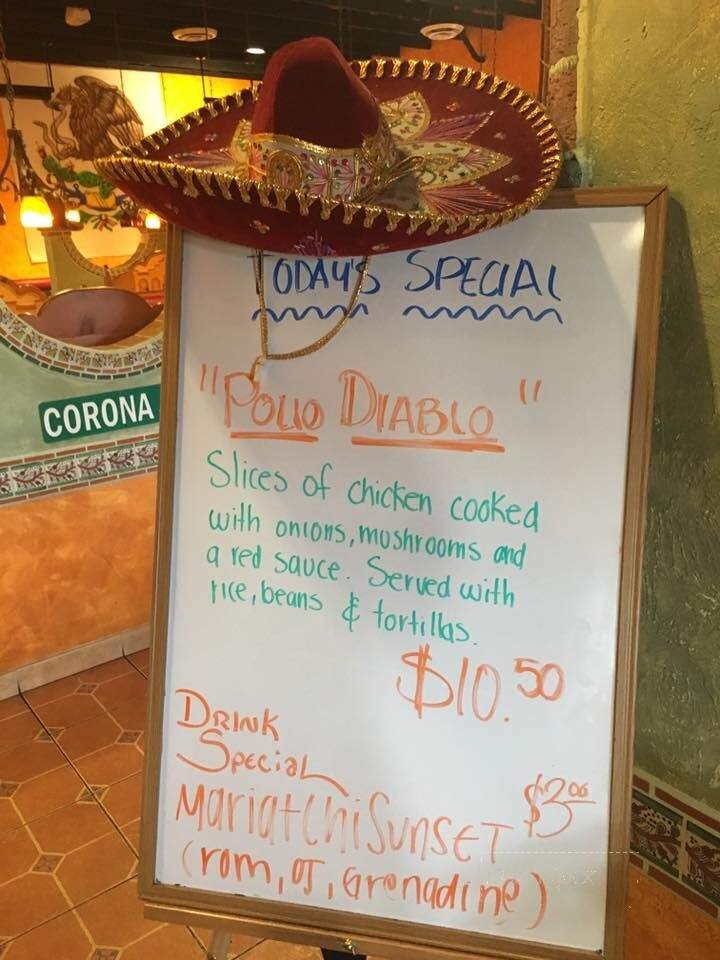 TODAY'S SPECIAL
"POLLO DIABLO"
CORONA
Slices of chicken cooked
with onions, mushrooms and
a red sauce. Served with
rice, beans & tortillas.
$10.50
DRINK
SPECIAL
MariatchiSunset $3.00
(rom, OJ, Grenadine)